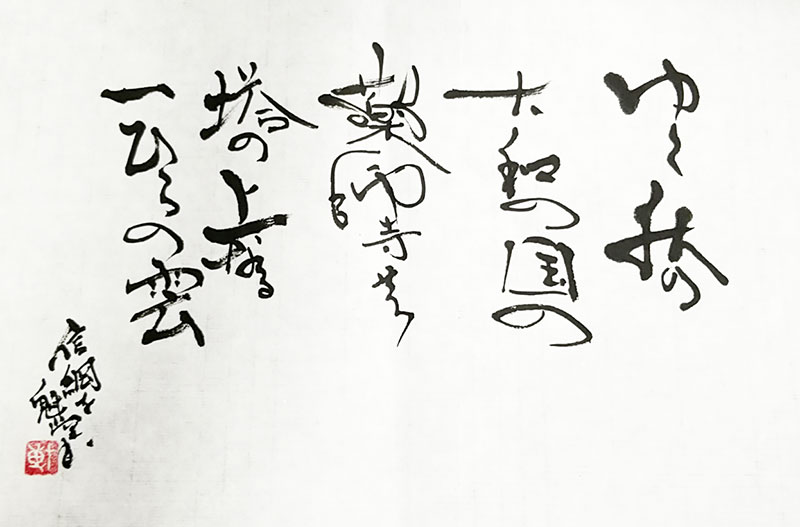 ゆく秋の
大和の国の
薬師寺の
塔の上なる
一ひらの雲
信綱を